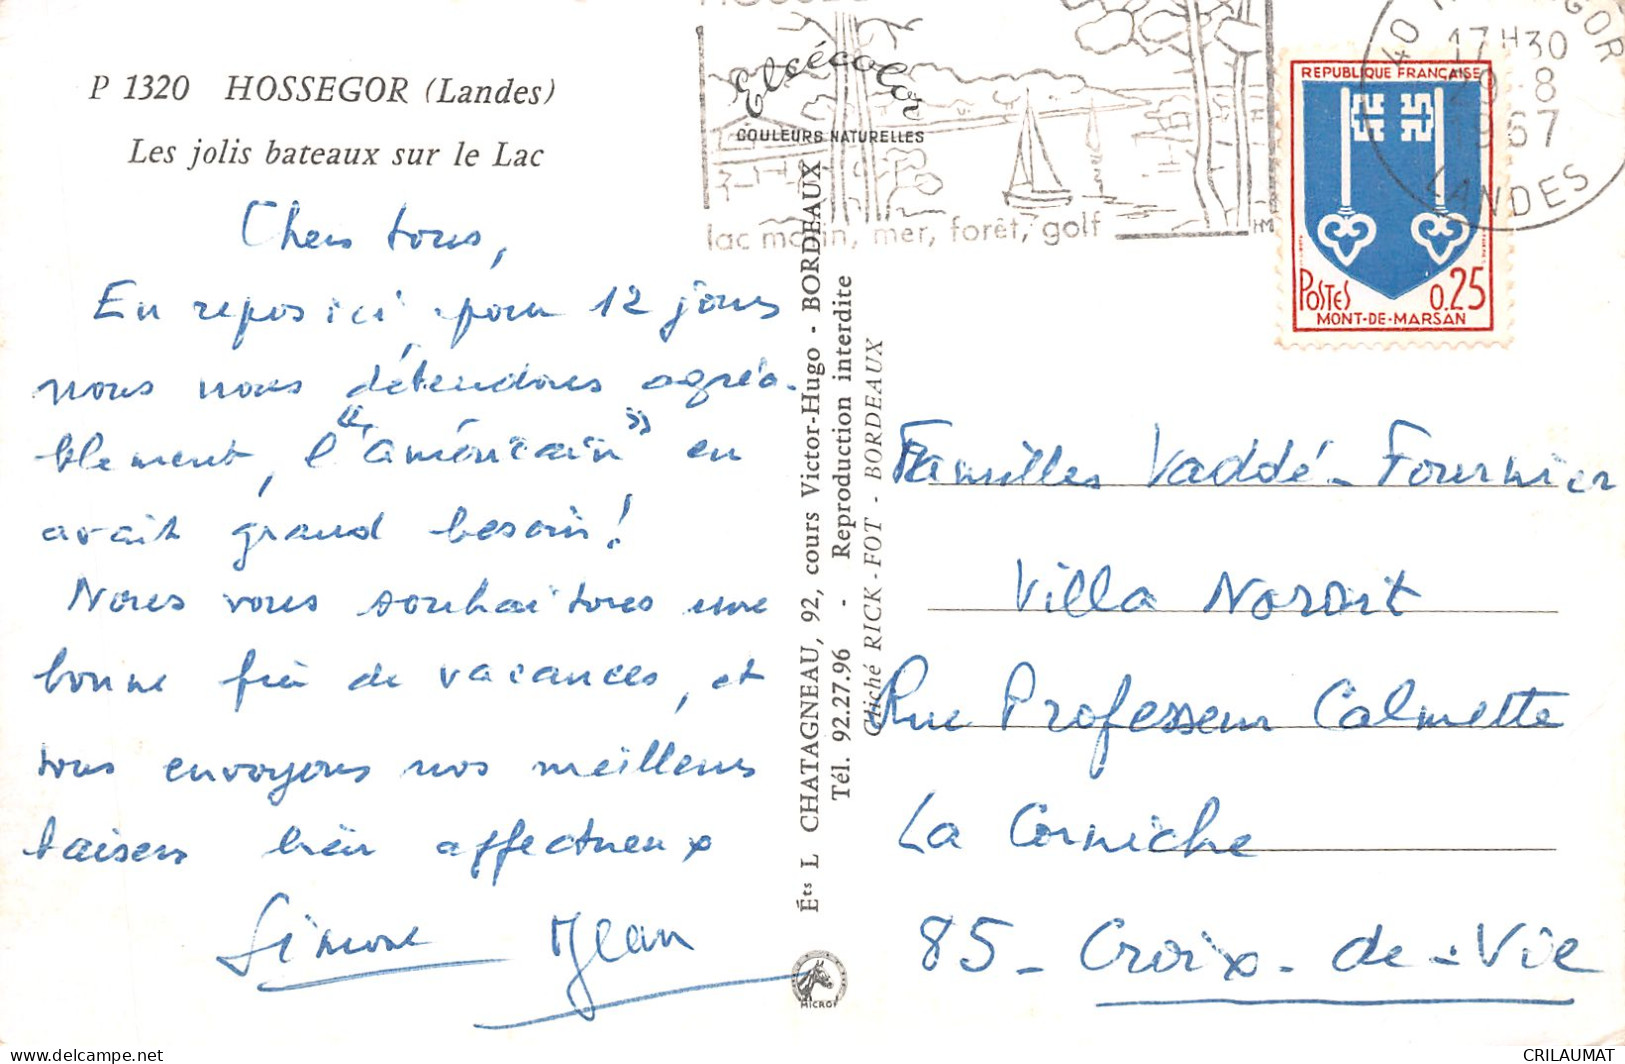 P 1320 HOSSEGOR (Landes)
Les jolis bateaux sur le Lac
Chers tous,
En repos ici pour 12 jours
nous nous détendons agréa-
blement, l'"américain" en
avait grand besoin!
Nous vous souhaitons une
bonne fin de vacances, et
vous envoyons nos meilleurs
baisers bien affectueux
Simone Jean
Elcécolor
COULEURS NATURELLES
lac marin, mer, forêt, golf
HM
Éts L CHATAGNEAU, 92, cours Victor-Hugo - BORDEAUX
Tél. 92.27.96 - Reproduction interdite
Cliché RICK-FOT - BORDEAUX
17H30
29-8
1967
LANDES
REPUBLIQUE FRANÇAISE
POSTES 0.25
MONT-DE-MARSAN
Familles Vaddé-Fournier
Villa Noroit
Rue Professeur Calmette
La Corniche
85 - Croix-de-Vie
CRILAUMAT